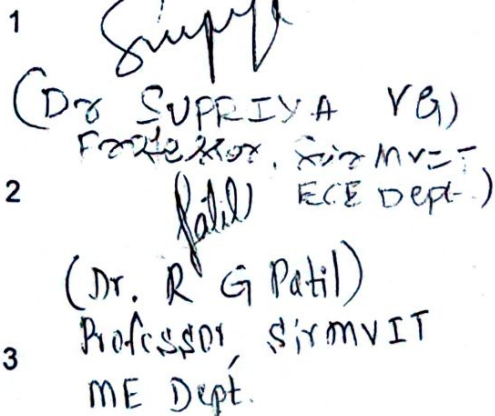 1
(Dr SUPRIYA V G)
Professor, Sir MVIT
ECE Dept.)
2
Patil
(Dr. R G Patil)
Professor, Sir MVIT
3
ME Dept.